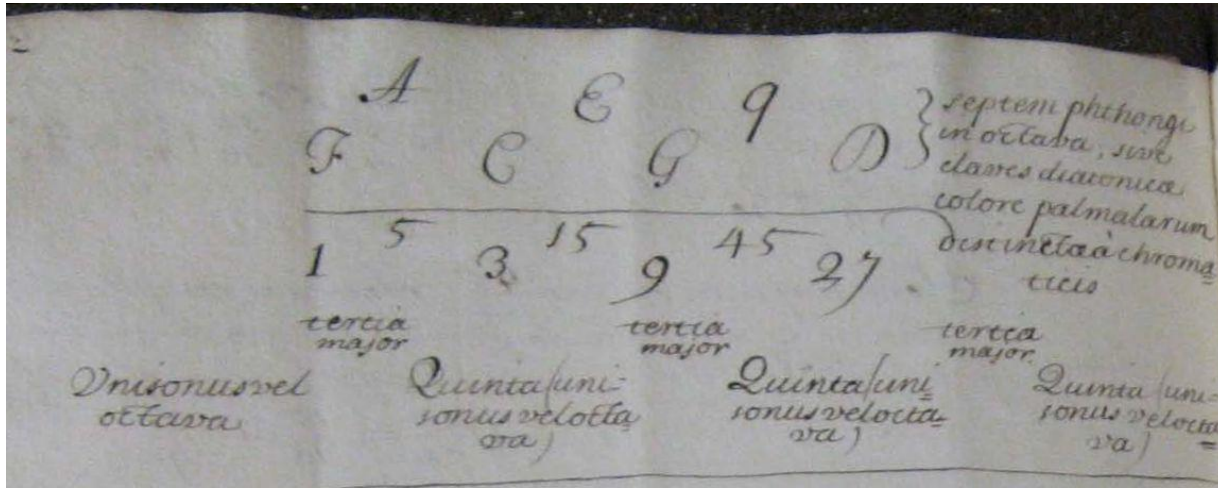 A E 9
F C G D
septem phthongi
in octava, sive
claves diatonicæ
colore palmularum
distinctæ à chroma=
ticis
5 15 45
1 3 9 27
tertia
major
tertia
major
tertia
major.
Unisonus vel
octava
Quinta (uni=
sonus vel octa=
va)
Quinta (uni=
sonus vel octa=
va)
Quinta (uni=
sonus vel octa=
va)